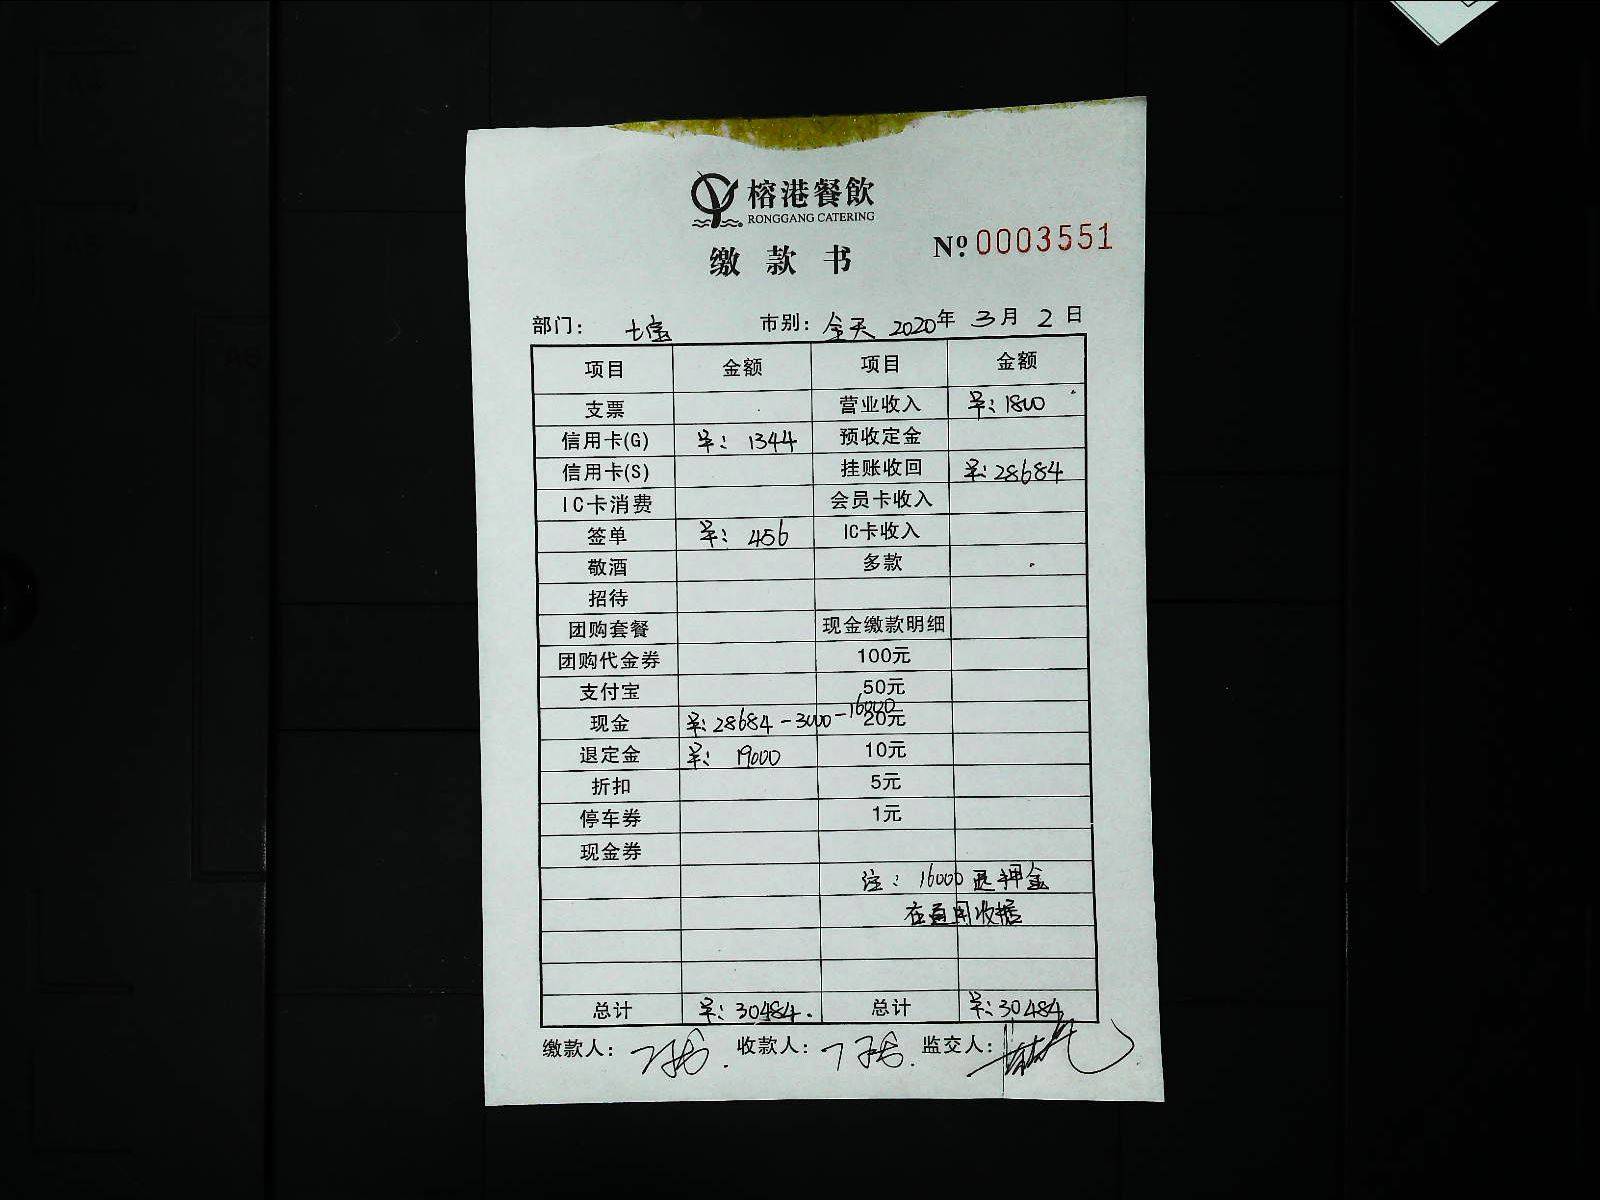 榕港餐飲
RONGGANG CATERING
缴款书
№ 0003551
部门： 七宝 市别：全天 2020年 3月 2日
项目 金额 项目 金额
支票 营业收入 单：1800
信用卡(G) 单：1344 预收定金
信用卡(S) 挂账收回 单：28684
IC卡消费 会员卡收入
签单 单：456 IC卡收入
敬酒 多款
招待
团购套餐 现金缴款明细
团购代金券 100元
支付宝 50元
现金 单：28684-3000-16000 20元
退定金 单：19000 10元
折扣 5元
停车券 1元
现金券
注：16000 退押金
在通用收据
总计 单：30484. 总计 单：30484
缴款人： 收款人： 监交人：